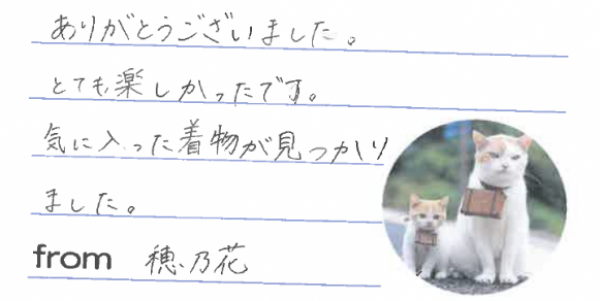 ありがとうございました。
とても楽しかったです。
気に入った着物が見つかり
ました。
from 穂乃花